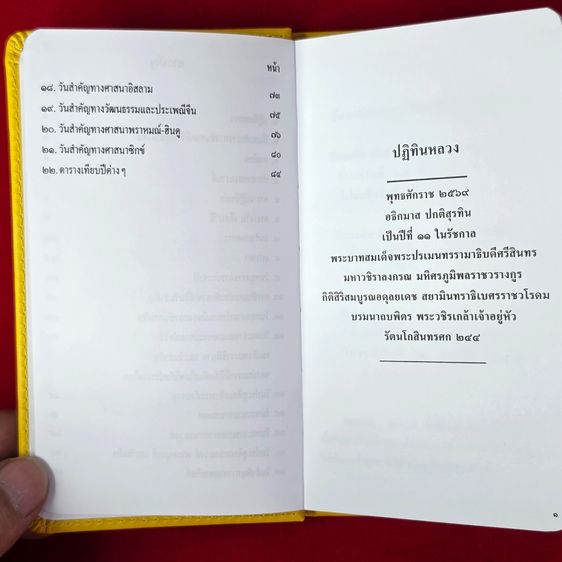 หน้า
๑๘. วันสำคัญทางศาสนาอิสลาม ๗๓
๑๙. วันสำคัญทางวัฒนธรรมและประเพณีจีน ๗๕
๒๐. วันสำคัญทางศาสนาพราหมณ์-ฮินดู ๗๖
๒๑. วันสำคัญทางศาสนาซิกข์ ๘๐
๒๒. ตารางเทียบปีต่าง ๆ ๘๔
ปฏิทินหลวง
พุทธศักราช ๒๕๖๙
อธิกมาส ปกติสุรทิน
เป็นปีที่ ๑๑ ในรัชกาล
พระบาทสมเด็จพระปรเมนทรรามาธิบดีศรีสินทร
มหาวชิราลงกรณ มหิศรภูมิพลราชวรางกูร
กิติสิริสมบูรณอดุลยเดช สยามินทราธิเบศรราชวโรดม
บรมนาถบพิตร พระวชิรเกล้าเจ้าอยู่หัว
รัตนโกสินทรศก ๒๔๔
๑